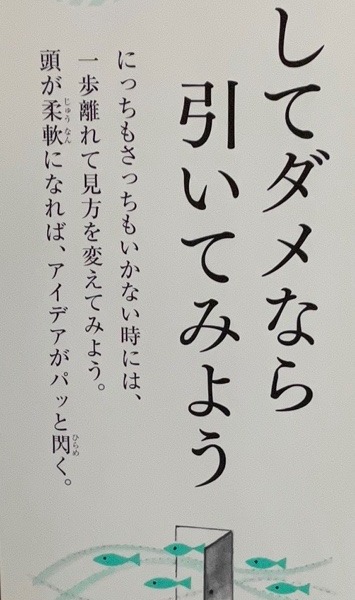 してダメなら
引いてみよう
にっちもさっちもいかない時には、
一歩離れて見方を変えてみよう。
頭が柔軟になれば、アイデアがパッと閃く。
じゅうなん
ひらめ